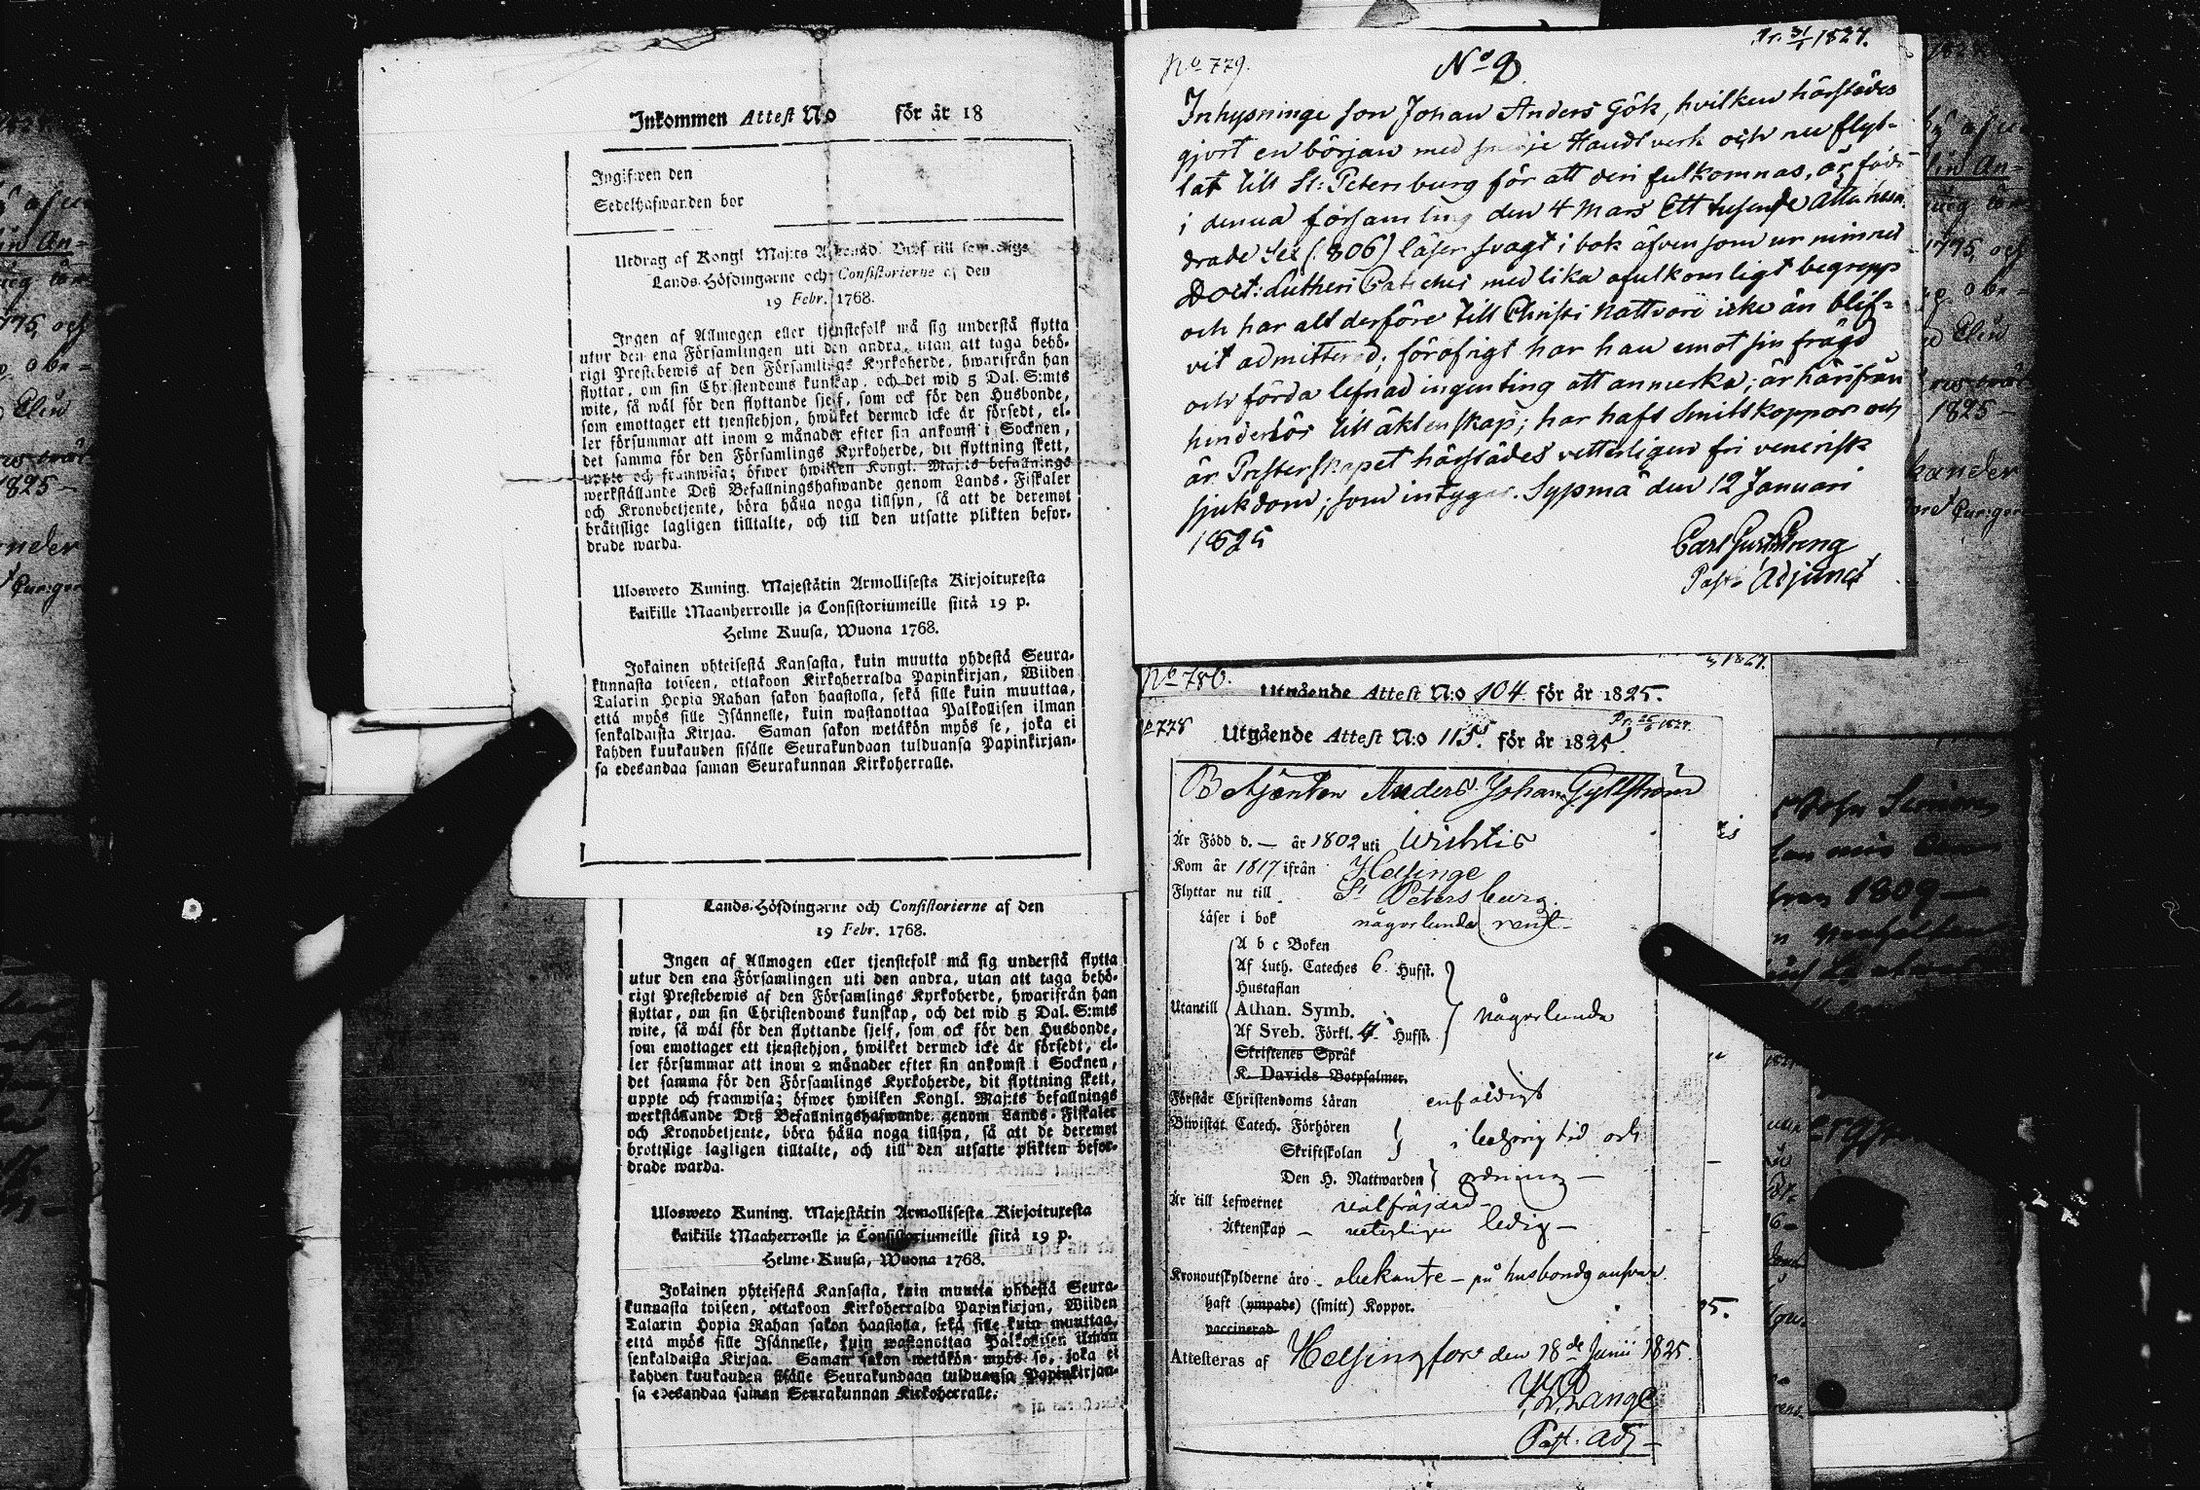 Inkommen Attest No för år 18
Ingifwen den
Sedelhafwanden bor
Utdrag af Kongl Maj:ts Bref till
Lands-Höfdingarne och Consistorierne af den
19 Febr. 1768.
Ingen af Allmogen eller tjenstefolk må sig understå flytta
utur den ena Församlingen uti den andra, utan att taga behö-
rigt Prestebewis af den Församlings Kyrkoherde, hwarifrån han
flyttar, om sin Christendoms kunskap, och det wid 5 Dal. S:mts
wite, så wäl för den flyttande sjelf, som ock för den Husbonde,
som emottager ett tjenstehjon, hwilket dermed icke är försedt, el-
ler försummar att inom 2 månader efter sin ankomst i Socknen,
det samma för den Församlings Kyrkoherde, dit flyttning skett,
uppte och framwisa; öfwer hwilken Kongl. Maj:ts befallnings
werkställande Deß Befallningshafwande genom Lands-Fiskaler
och Kronobetjente, böra hålla noga tillsyn, så att de deremot
bråttslige lagligen tilltalte, och till den utsatte plikten befor-
drade warda.
Ulosweto Kuning. Majestätin Armollisesta Kirjoituxesta
kaikille Maanherroille ja Consistoriumeille siitä 19 p.
Helme Kuusa, Wuona 1768.
Jokainen yhteisestä Kansasta, kuin muutta yhdestä Seura-
kunnasta toiseen, ottakoon Kirkoherralda Papinkirjan, Wiiden
Talarin Hopia Rahan sakon haastolla, sekä sille kuin muuttaa,
että myös sille Isännelle, kuin wastanottaa Palkollisen ilman
senkaldaista Kirjaa. Saman sakon wetäkön myös se, joka ei
kahden kuukauden sisälle Seurakundaan tulduansa Papinkirjan-
sa edesandaa saman Seurakunnan Kirkoherralle.
Lands-Höfdingarne och Consistorierne af den
19 Febr. 1768.
Ingen af Allmogen eller tjenstefolk må sig understå flytta
utur den ena Församlingen uti den andra, utan att taga behö-
rigt Prestebewis af den Församlings Kyrkoherde, hwarifrån han
flyttar, om sin Christendoms kunskap, och det wid 5 Dal. S:mts
wite, så wäl för den flyttande sjelf, som ock för den Husbonde,
som emottager ett tjenstehjon, hwilket dermed icke är försedt, el-
ler försummar att inom 2 månader efter sin ankomst i Socknen,
det samma för den Församlings Kyrkoherde, dit flyttning skett,
uppte och framwisa; öfwer hwilken Kongl. Maj:ts befallnings
werkställande Deß Befallningshafwande genom Lands-Fiskaler
och Kronobetjente, böra hålla noga tillsyn, så att de deremot
brottslige lagligen tilltalte, och till den utsatte plikten befor-
drade warda.
Ulosweto Kuning. Majestätin Armollisesta Kirjoituxesta
kaikille Maaherroille ja Consistoriumeille siitä 19 p.
Helme-Kuusa, Wuona 1768.
Jokainen yhteisestä Kansasta, kuin muutta yhdestä Seura-
kunnasta toiseen, ottakoon Kirkoherralda Papinkirjan, Wiiden
Talarin Hopia Rahan sakon haastolla, sekä sille kuin muuttaa,
että myös sille Isännelle, kuin wastanottaa Palkollisen ilman
senkaldaista Kirjaa. Saman sakon wetäkön myös se, joka ei
kahden kuukauden sisälle Seurakundaan tulduansa Papinkirjan-
sa edesandaa saman Seurakunnan Kirkoherralle.
No 779. Pr. 31/1 1827.
No 8
Inhysninge son Johan Anders Gök, hvilken härstädes
gjort en början med smedje Handtverk och nu flyt-
tat till St: Petersburg för att deri fulkomnas, är född
i denna församling den 4 Mars Ett tusende Åtta hun-
drade Sex (1806) läser svagt i bok äfven som ur minnet
Doct: Lutheri Cateches med lika ofulkomligt begrepp
och har alt derföre till Christi Nattvard icke än blif-
vit admitterad; föröfrigt har han emot sin frägd
och förda lefnad ingenting att anmerka; är härifrån
hinderlös till äktenskap; har haft Smittkoppor och
är Presterskapet härstädes vetterligen fri venerisk
sjukdom; som intygar. Sysmä den 12 Januari
1825
Carl Gust Streng
Past: Adjunct
No 786.
Utgående Attest N:o 104 för år 1825.
No 778 Pr. 25/6 1827.
Utgående Attest N:o 115. för år 1825.
Betjenten Anders Johan Gyllström
Är Född d. — år 1802 uti Wichtis
Kom år 1817 ifrån Helsinge
Flyttar nu till St Petersburg.
Läser i bok någorlunda rent
A b c Boken
Af Luth. Cateches 6 Hufst.
Hustaflan
Utantill Athan. Symb. någorlunda
Af Sveb. Förkl. 4 Hufst.
Skriftenes Språk
K. Davids Botpsalmer.
Förstår Christendoms Läran enfåldigt
Biwistat Catech. Förhören
Skriftskolan i behörig tid och
Den H. Nattwarden ordning —
Är till Lefwernet välfräjdad
Äktenskap — veterligen ledig —
Kronoutskylderne äro obekante — på husbondes ansvar
haft (ympade) (smitt) Koppor.
vaccinerad
Attesteras af Helsingfors den 18de Junii 1825.
Lange
Past. Adj —